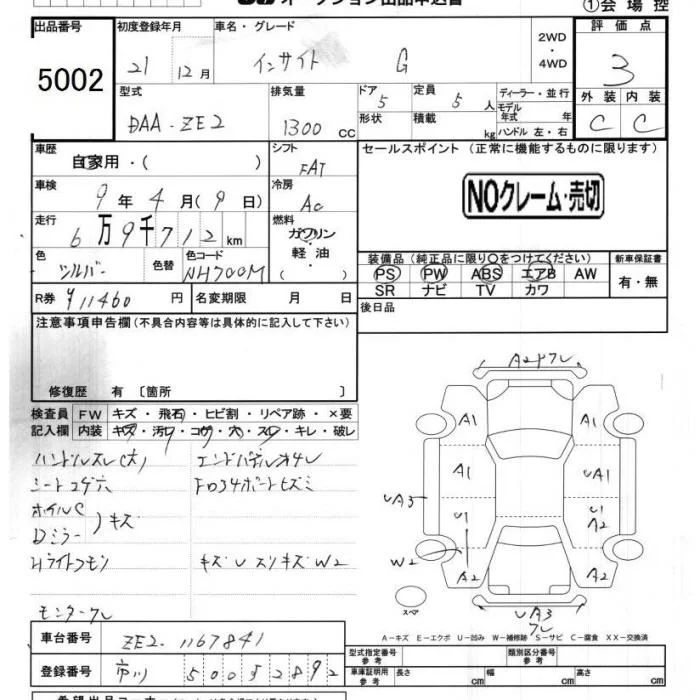 年 月 オークション出品申込書
①会場控
出品番号 5002
初度登録年月 21 12月
車名・グレード インサイト G
2WD・4WD
評価点 3
外装 C 内装 C
型式 DAA-ZE2
排気量 1300 CC
ドア 5 形状
定員 5人 積載 kg
ディーラー・並行
モデル年式 年
ハンドル 左・右
車歴 自家用・( )
シフト FAT
セールスポイント (正常に機能するものに限ります)
NOクレーム・売切
車検 9年4月(9日)
冷房 AC
走行 6万9千712km
燃料 ガソリン 軽油・( )
色 シルバー 色替 色コード NH700M
装備品 (純正品に限り○をつけてください)
PS PW ABS エアB AW
SR ナビ TV カワ
新車保証書 有・無
R券 ¥11460円
名変期限 月 日
後日品
注意事項申告欄 (不具合内容等は具体的に記入して下さい)
修復歴 有 〔箇所 〕
検査員記入欄
FW キズ・飛石・ヒビ割・リペア跡・×要
内装 キズ・汚レ・コゲ・穴・スレ・キレ・破レ
ハンドルスレ(大)
シートコゲ穴
ホイルC
Dミラー )キズ
Hライトクモリ
キズUスリキズW2
A1 A1
A1 UA1
UA3 U1 U1 A2
W2 A2 A2
スペア
UA3
A-キズ E-エクボ U-凹み W-補修跡 S-サビ C-腐食 XX-交換済
車台番号 ZE2-1167841
登録番号 市川 500 5 2892
型式指定番号 参考 類別区分番号 参考
車庫証明用 参考 長さ cm 幅 cm 高さ cm